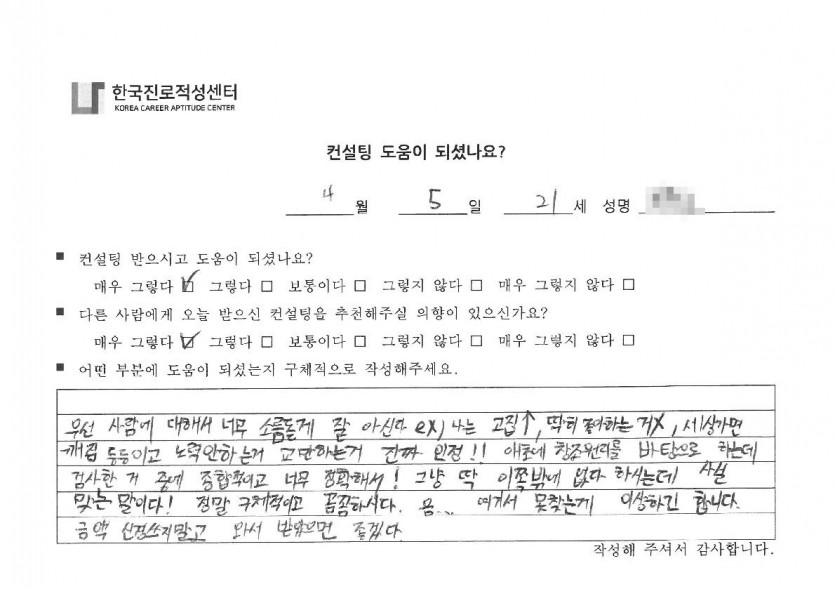 한국진로적성센터
KOREA CAREER APTITUDE CENTER
컨설팅 도움이 되셨나요?
4 월 5 일 21 세 성명
■ 컨설팅 받으시고 도움이 되셨나요?
매우 그렇다 ☑ 그렇다 □ 보통이다 □ 그렇지 않다 □ 매우 그렇지 않다 □
■ 다른 사람에게 오늘 받으신 컨설팅을 추천해주실 의향이 있으신가요?
매우 그렇다 ☑ 그렇다 □ 보통이다 □ 그렇지 않다 □ 매우 그렇지 않다 □
■ 어떤 부분에 도움이 되셨는지 구체적으로 작성해주세요.
우선 사람에 대해서 너무 소름돋게 잘 아신다 ex) 나는 고집↑, 딱히 좋아하는 거X, 세상가면
등등이고 노력안하는거 인정!! 애초에 창조원리를 바탕으로 하는데
검사한 거 중에 종합적이고 너무 정확해서! 그냥 딱 이쪽밖에 없다 하시는데 사실
맞는 말이다! 정말 구체적이고 꼼꼼하시다. 음... 여기서 못찾는게 이상하긴 합니다.
금액 신경쓰지말고 와서 받았으면 좋겠다.
작성해 주셔서 감사합니다.